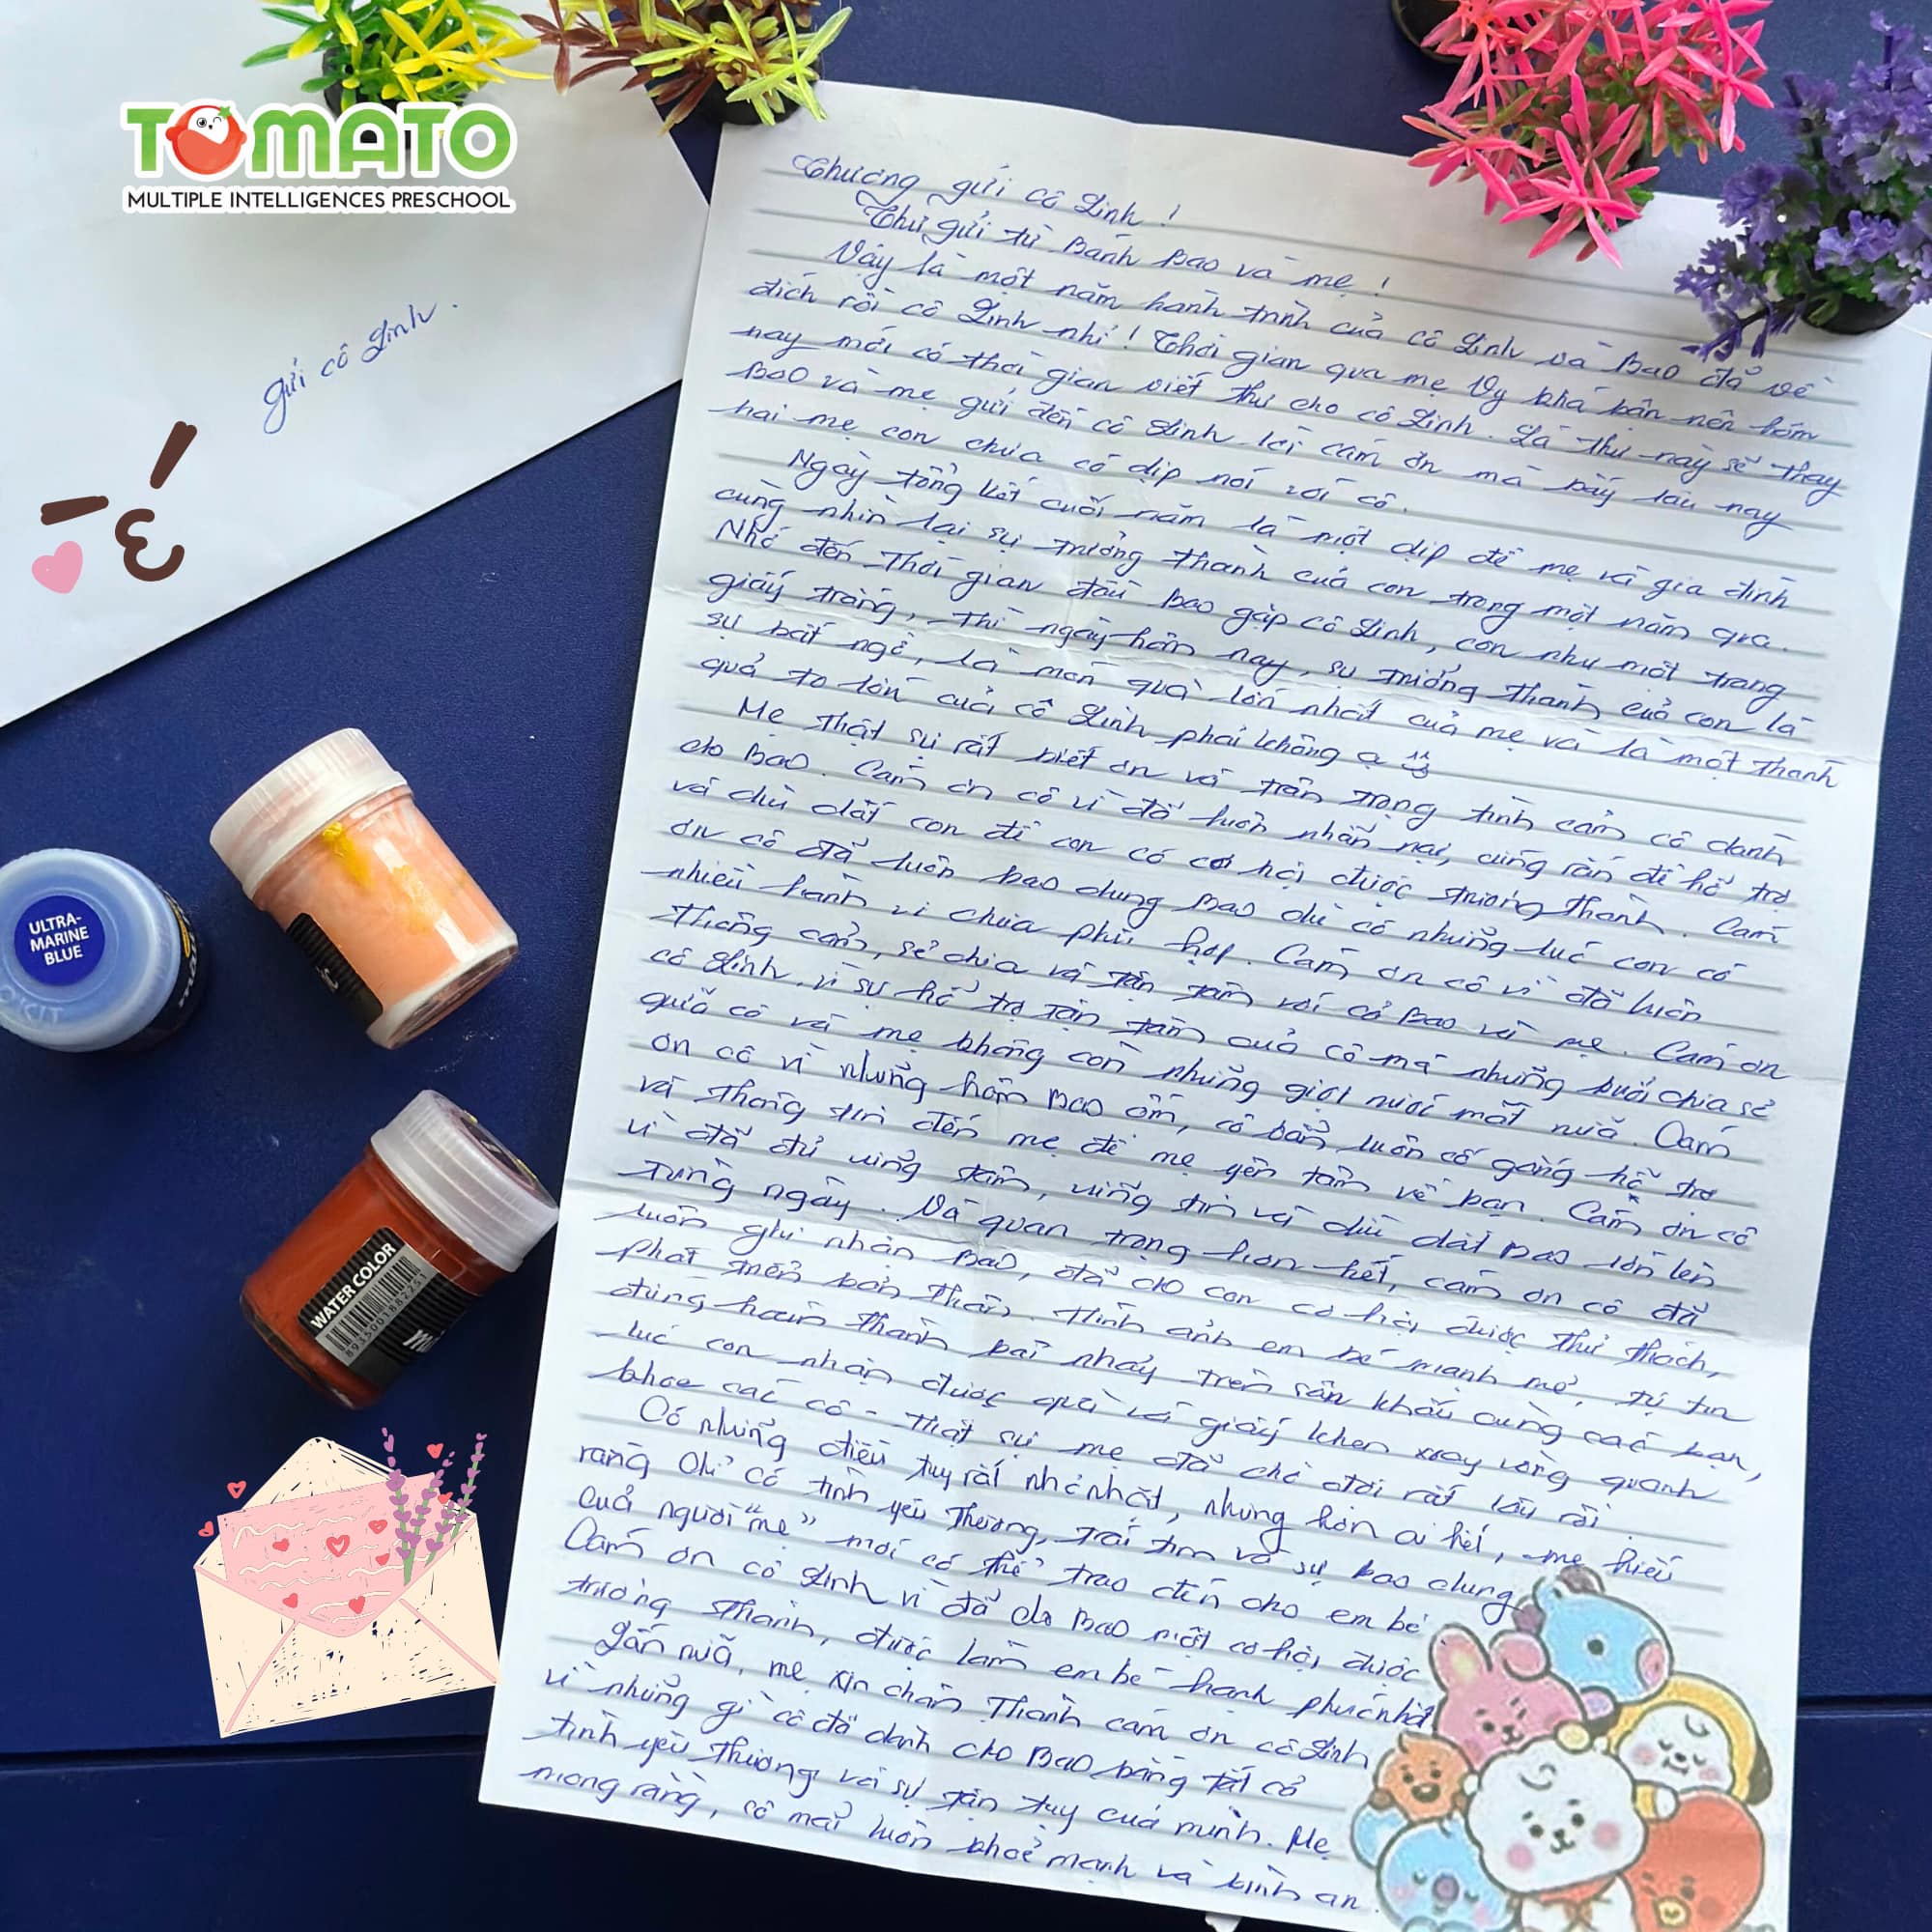 TOMATO
MULTIPLE INTELLIGENCES PRESCHOOL
gửi cô Linh.
Thương gửi cô Linh!
Thư gửi từ Bánh Bao và mẹ!
Vậy là một năm hành trình của cô Linh và Bao đã về
đích rồi cô Linh nhỉ! Thời gian qua mẹ Vy khá bận nên hôm
nay mới có thời gian viết thư cho cô Linh. Lá thư này sẽ thay
Bao và mẹ gửi đến cô Linh lời cảm ơn mà bấy lâu nay
hai mẹ con chưa có dịp nói với cô.
Ngày tổng kết cuối năm là một dịp để mẹ và gia đình
cùng nhìn lại sự trưởng thành của con trong một năm qua.
Nhớ đến thời gian đầu Bao gặp cô Linh, con như một trang
giấy trắng, thì ngày hôm nay, sự trưởng thành của con là
sự bất ngờ, là món quà lớn nhất của mẹ và là một thành
quả to lớn của cô Linh phải không ạ
Mẹ thật sự rất biết ơn và trân trọng tình cảm cô dành
cho Bao. Cảm ơn cô vì đã luôn nhẫn nại, cứng rắn để hỗ trợ
và dìu dắt con để con có cơ hội được trưởng thành. Cảm
ơn cô đã luôn bao dung Bao dù có những lúc con có
nhiều hành vi chưa phù hợp. Cảm ơn cô vì đã luôn
thông cảm, sẻ chia và tận tâm với cả Bao và mẹ. Cảm ơn
cô Linh, vì sự hỗ trợ tận tâm của cô mà những buổi chia sẻ
giữa cô và mẹ không còn những giọt nước mắt nữa. Cảm
ơn cô vì những hôm Bao ốm, cô bận luôn cố gắng hỗ trợ
và thông tin đến mẹ để mẹ yên tâm về bạn. Cảm ơn cô
vì đã đủ vững tâm, vững tin và dìu dắt Bao lớn lên
từng ngày. Và quan trọng hơn hết, cảm ơn cô đã
luôn ghi nhận Bao, đã cho con cơ hội được thử thách,
phát triển bản thân. Hình ảnh em bé mạnh mẽ, tự tin
đứng hoàn thành bài nhảy trên sân khấu cùng các bạn,
lúc con nhận được quà và giấy khen xoay vòng quanh
khoe các cô - thật sự mẹ đã chờ đợi rất lâu rồi.
Có những điều tuy rất nhỏ nhặt, nhưng hơn ai hết, mẹ hiểu
rằng chỉ có tình yêu thương, trái tim và sự bao dung
của người "mẹ" mới có thể trao đến cho em bé
Cảm ơn cô Linh vì đã cho Bao một cơ hội được
trưởng thành, được làm em bé hạnh phúc nhất
Lần nữa, mẹ xin chân thành cảm ơn cô Linh
vì những gì cô đã dành cho Bao bằng tất cả
tình yêu thương và sự tận tụy của mình. Mẹ
mong rằng, cô mãi luôn khoẻ mạnh và bình an.
ULTRA-
MARINE
BLUE
WATER COLOR